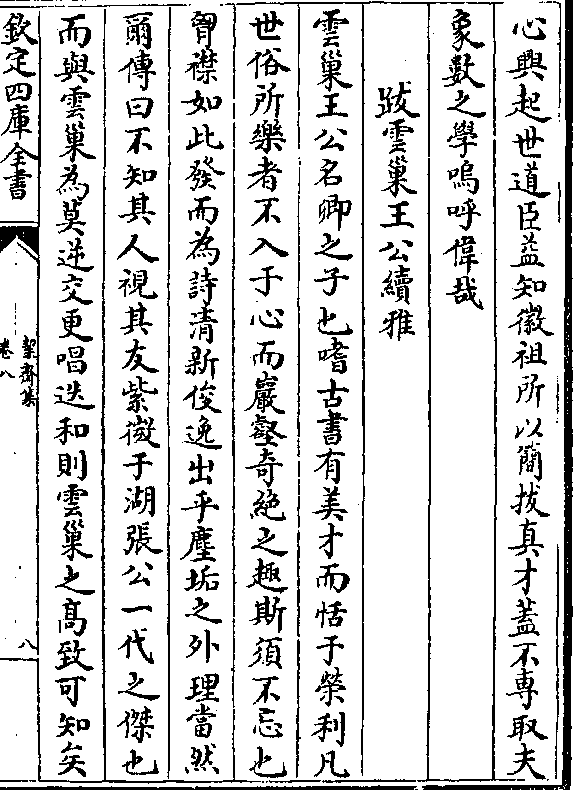 心興起世道臣益知徽祖所以簡拔真才蓋不専取夫
象數之學嗚呼偉哉
跋雲巢王公續雅
雲巢王公名卿之子也嗜古書有美才而恬于榮利凡
世俗所樂者不入于心而巖壑奇絶之趣斯須不忘也
胷襟如此發而為詩清新俊逸出乎塵垢之外理當然
爾傳曰不知其人視其友紫微于湖張公一代之傑也
而與雲巢為莫逆交更唱迭和則雲巢之髙致可知矣
欽定四庫全書
絜齋集
卷八
八